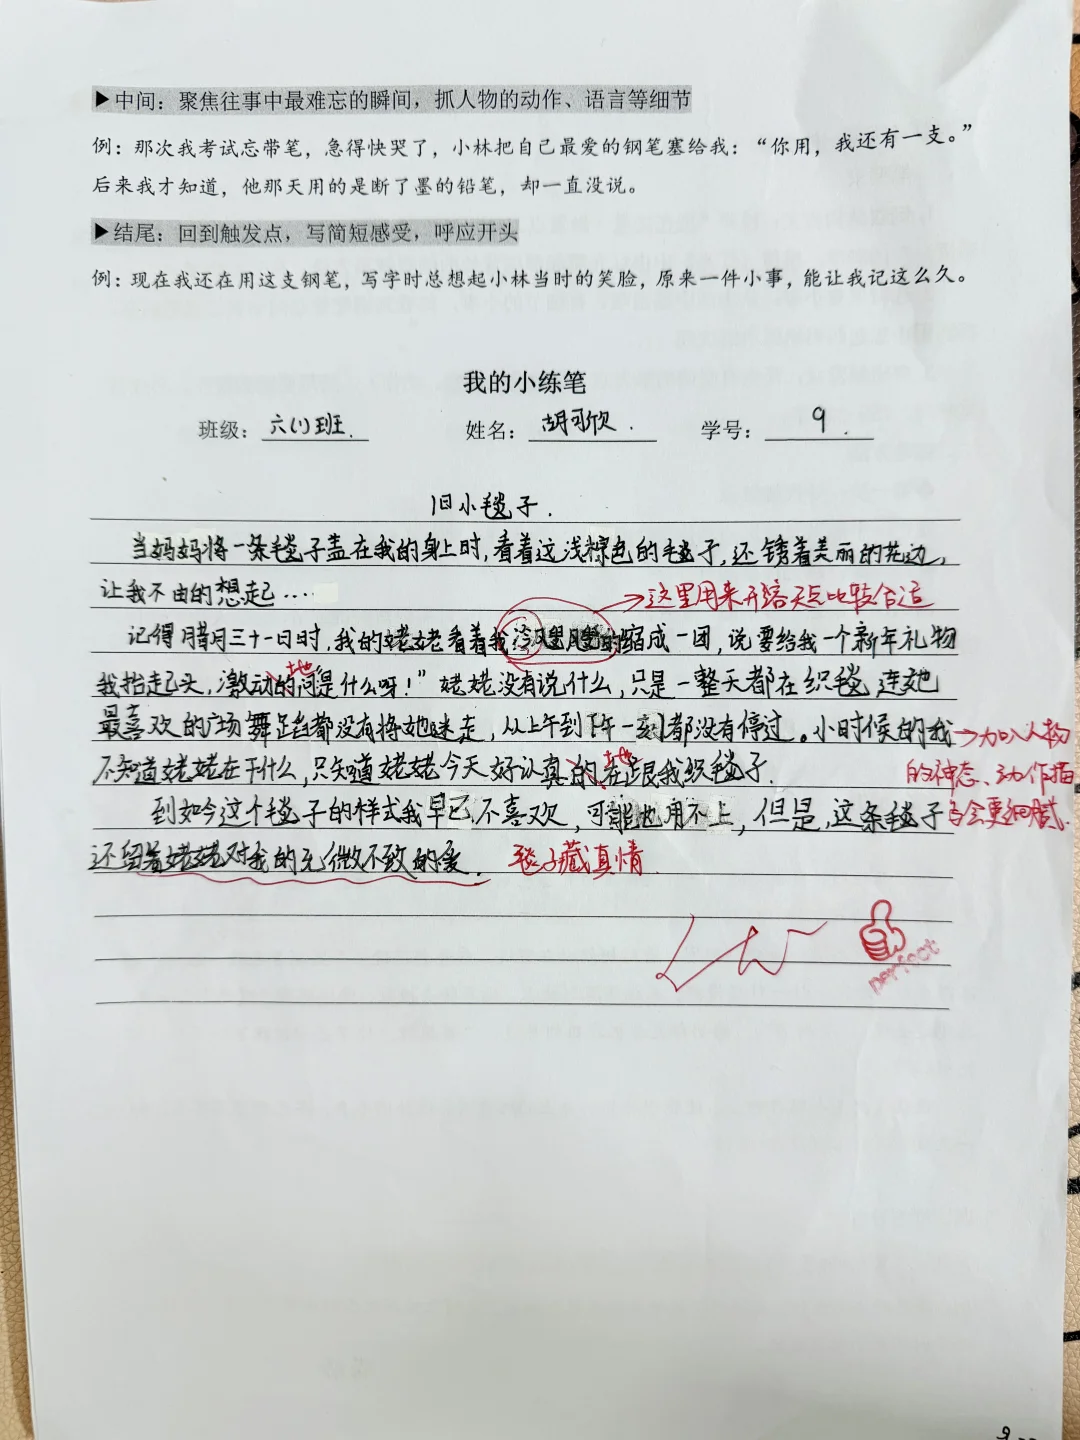 ▶中间：聚焦往事中最难忘的瞬间，抓人物的动作、语言等细节
例：那次我考试忘带笔，急得快哭了，小林把自己最爱的钢笔塞给我：“你用，我还有一支。”
后来我才知道，他那天用的是断了墨的铅笔，却一直没说。
▶结尾：回到触发点，写简短感受，呼应开头
例：现在我还在用这支钢笔，写字时总想起小林当时的笑脸，原来一件小事，能让我记这么久。
我的小练笔
班级：六(1)班. 姓名：胡可欣. 学号：9.
旧小毯子.
当妈妈将一条毯子盖在我的身上时，看着这浅棕色的毯子，还锈着美丽的花边，
让我不由的想起····
→这里用来形容天点比较合适
记得腊月三十一日时，我的姥姥看着我冷飕飕的缩成一团，说要给我一个新年礼物
地
我抬起头，激动的问“是什么呀！”姥姥没有说什么，只是一整天都在织毯 连她
最喜欢的广场舞蹈都没有将她迷走，从上午到下午一刻都没有停过。小时候的我
→加入人物
地
不知道姥姥在干什么，只知道姥姥今天好认真的在跟我织毯子.
的神态、动作描
到如今这个毯子的样式我早已不喜欢，可能也用不上，但是，这条毯子
写会更细腻.
还留着姥姥对我的无微不致的爱. 毯子藏真情
perfect